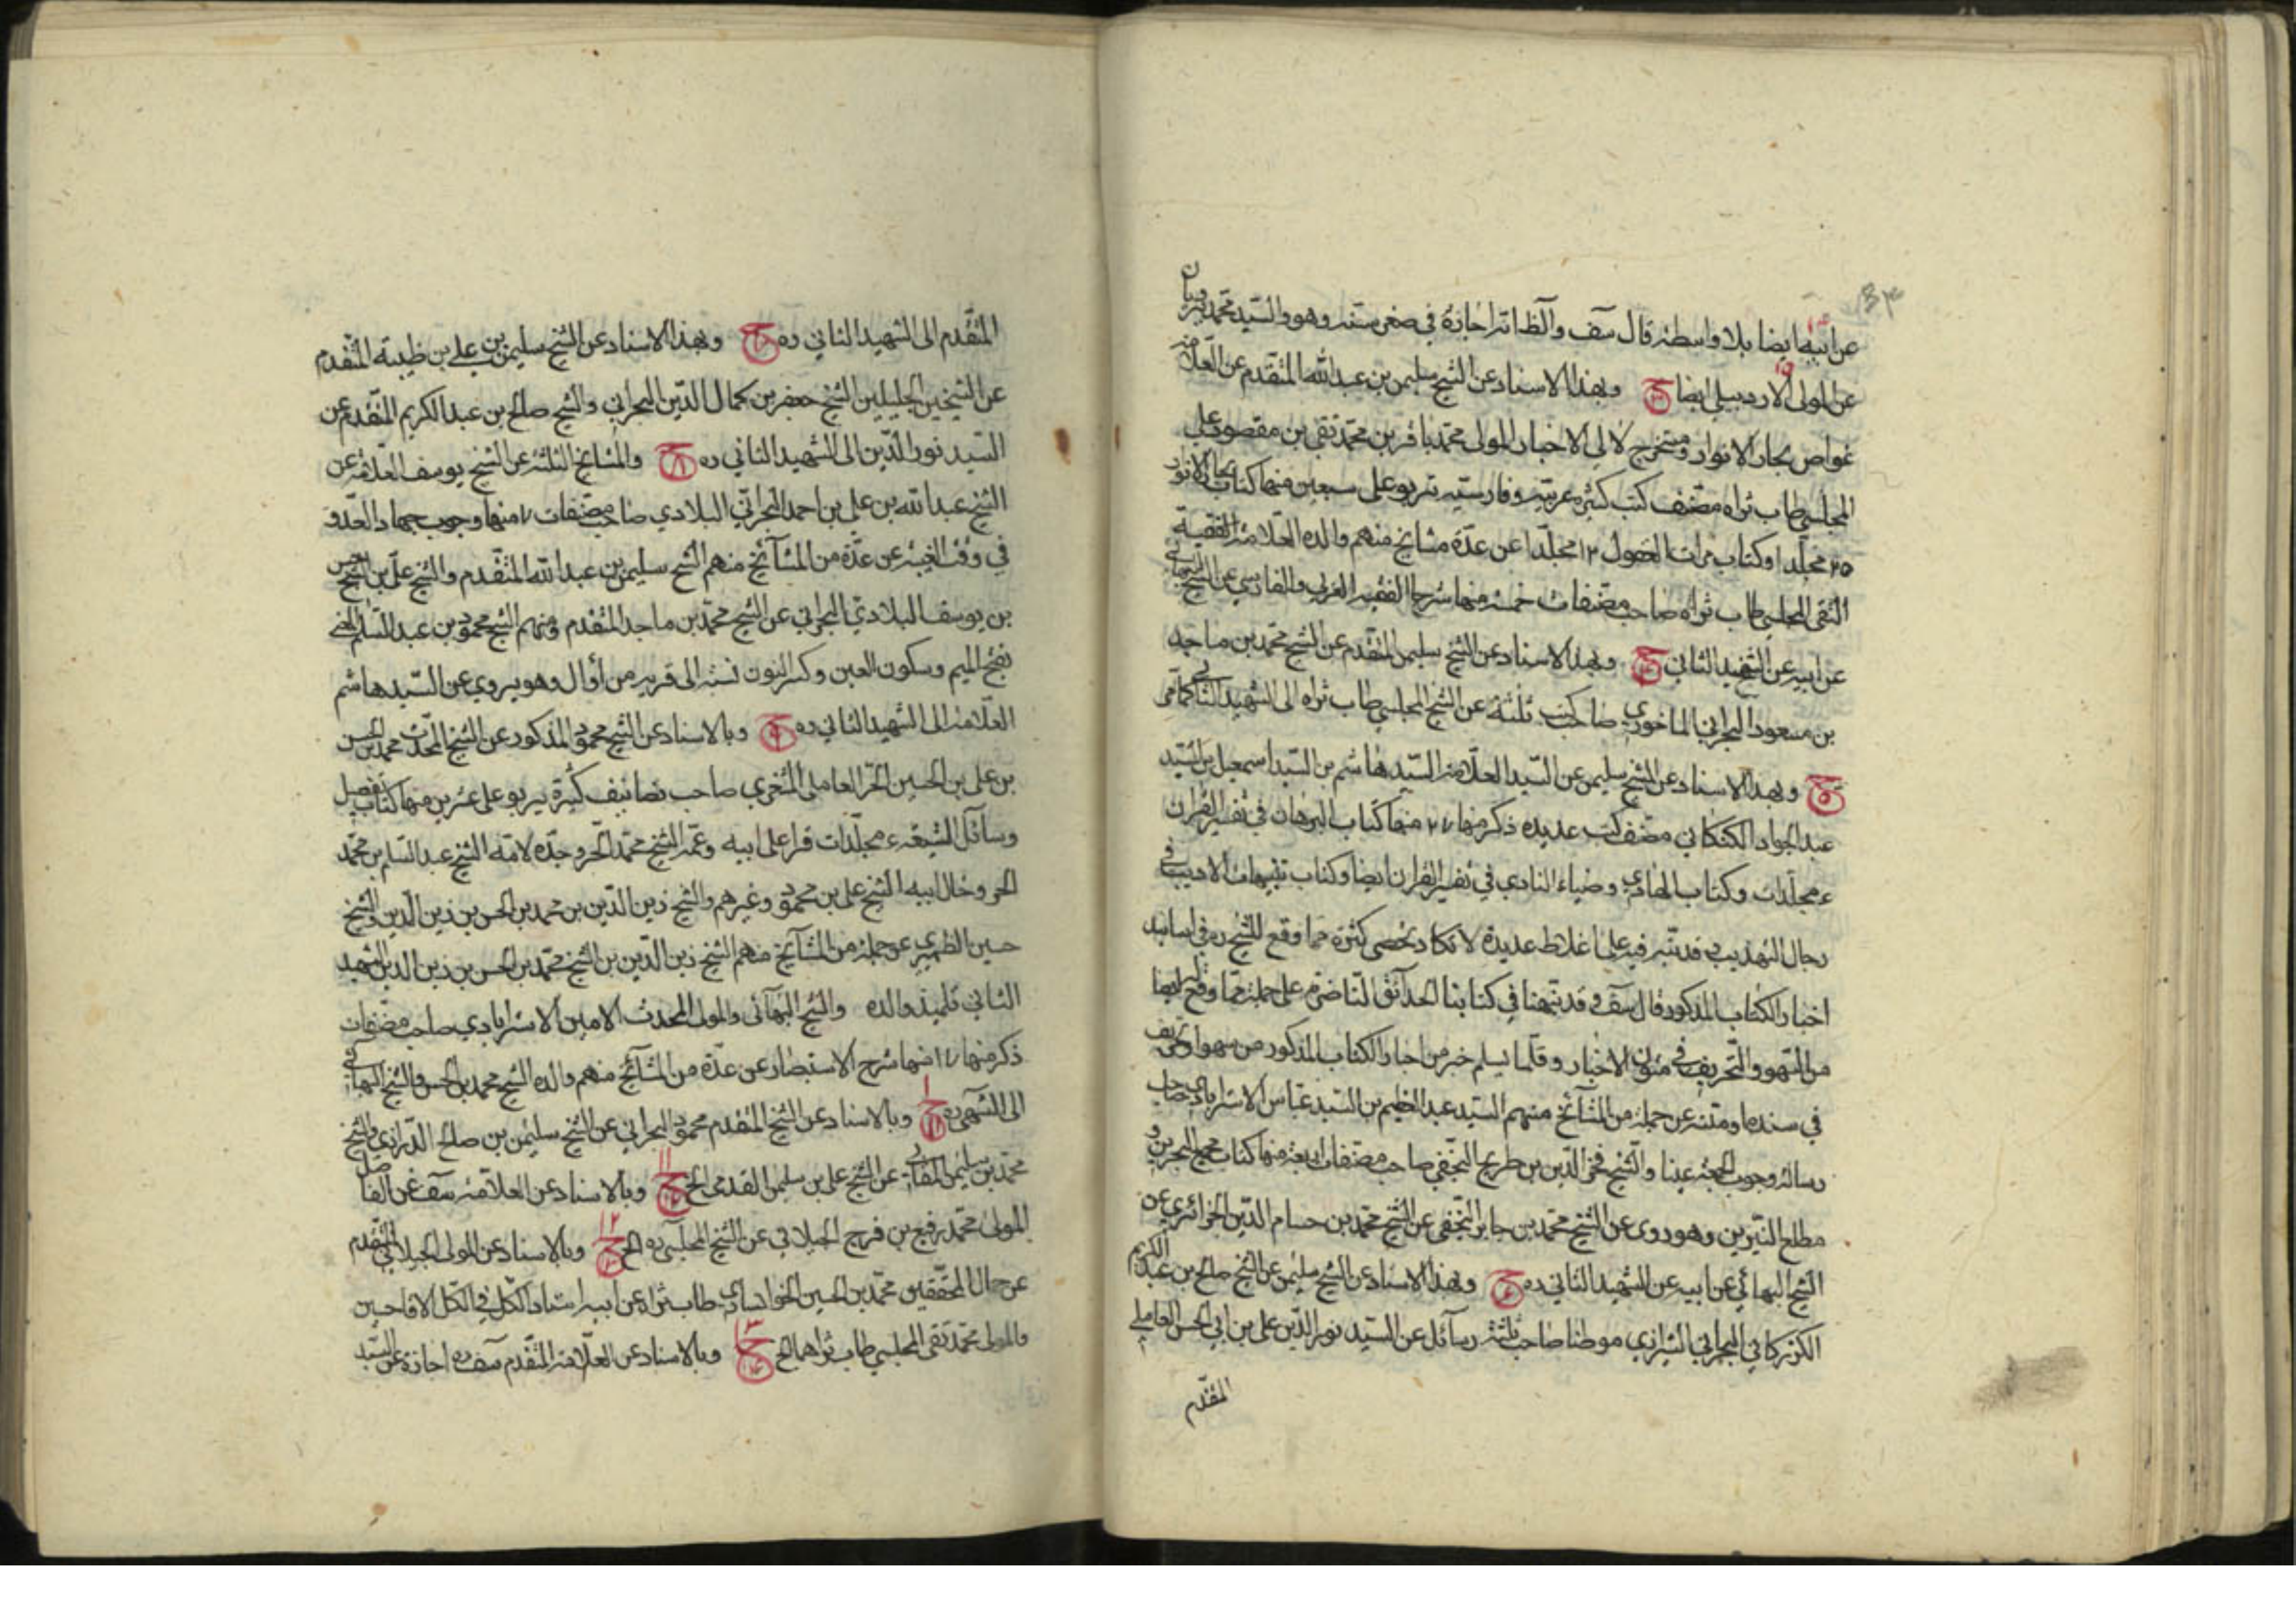 عن ابيه ايضا بلا واسطة قال سف والظ انه اجازة في صغر سنه وهو والسيد محمد يرويان
عن المولى الاردبيلي ايضا ح وبهذا الاسناد عن الشيخ سليمن بن عبد الله المتقدم عن العلامة
غواص بحار الانوار ومستخرج لالي الاخبار المولى محمد باقر بن محمد تقي بن مقصود علي
المجلسي طاب ثراه مصنف كتب كثيرة عربية وفارسية تربو على سبعين منها كتاب بحار الانوار
٢٥ مجلدا وكتاب مرات العقول ١٢ مجلدا عن عدة مشايخ منهم والده العلامة الفقيه
التقي المجلسي طاب ثراه صاحب مصنفات خمسة منها شرحا الفقيه العربي والفارسي عن الشيخ البهائي
عن ابيه عن الشهيد الثاني ح وبهذا الاسناد عن الشيخ سليمن المتقدم عن الشيخ محمد بن ماجد
بن مسعود البحراني الماخوري صاحب كتب ثلثة عن الشيخ المجلسي طاب ثراه الى الشهيد الثاني كما مر
ح ٥ وبهذا الاسناد عن الشيخ سليمن عن السيد العلامة السيد هاشم بن السيد اسمعيل بن السيد
عبد الجواد الكتكاني مصنف كتب عديده ذكر منها منها كتاب البرهان في تفسير القران
٤ مجلدات وكتاب الهادي وضياء النادي في تفسير القران ايضا وكتاب تنبيهات الاديب في
رجال التهذيب قد نبه فيه على اغلاط عديدة لا تكاد تحصى كثرة مما وقع للشيخ ره في اسانيد
اخبار الكتاب المذكور قال سف وقد نبهنا في كتابنا الحدائق الناضرة على جملة مما وقع له ايضا
من السهو والتحريف في متون الاخبار وقلما يسلم خبر من اخبار الكتاب المذكور من سهو او تحريف
في سنده او متنه عن جملة من المشائخ منهم السيد عبد العظيم بن السيد عباس الاسترابادي صاحب
رسالة وجوب الجمعة عينا والشيخ فخر الدين بن طريح النجفي صاحب مصنفات اربعة منها كتاب مجمع البحرين و
مطلع النيرين وهو روى عن الشيخ محمد بن جابر النجفي عن الشيخ محمد بن حسام الدين الجزائري عن
الشيخ البهائي عن ابيه عن الشهيد الثاني ره ح ٦ وبهذا الاسناد عن الشيخ سليمن عن الشيخ صالح بن عبد الكريم
الكزكزاني البحراني الشيرازي موطنا صاحب ثلثة رسائل عن السيد نور الدين علي بن ابي الحسن العاملي
المتقدم
المتقدم الى الشهيد الثاني ره ح وبهذا الاسناد عن الشيخ سليمن بن علي بن ظبية المتقدم
عن الشيخين الجليلين الشيخ جعفر بن كمال الدين البحراني والشيخ صالح بن عبد الكريم المتقدم عن
السيد نور الدين الى الشهيد الثاني ره ح ٨ والمشايخ الثلثة عن الشيخ يوسف العلامة عن
الشيخ عبد الله بن علي بن احمد البحراني البلادي صاحب مصنفات منها وجوب جهاد العدو
في وقت الغيبة عن عدة من المشآئخ منهم الشيخ سليمن بن عبد الله المتقدم والشيخ علي بن الشيخ حسن
بن يوسف البلادي البحراني عن الشيخ محمد بن ماجد المتقدم ومنهم الشيخ محمود بن عبد السلام المعني
بفتح الميم وسكون العين وكسر النون نسبة الى قرية من أوال وهو يروي عن السيد هاشم
العلامة الى الشهيد الثاني ره ح ٩ وبالاسناد عن الشيخ محمود المذكور عن الشيخ المحدث محمد بن الحسن
بن علي بن الحسين الحر العاملي المشغري صاحب تصانيف كثيرة يربو على عشرين منها كتاب تفصيل
وسائل الشيعة ٤ مجلدات قرا على ابيه وعمه الشيخ محمد الحر وجده لامه الشيخ عبد السلم بن محمد
الحر وخال ابيه الشيخ علي بن محمود وغيرهم والشيخ زين الدين بن محمد بن الحسن بن زين الدين والشيخ
حسين الظهيري عن جملة من المشآئخ منهم الشيخ زين الدين بن الشيخ محمد بن الحسن بن زين الدين الشهيد
الثاني تلميذ والده والشيخ البهائي والمولى المحدث الامين الاسترابادي صاحب مصنفات
ذكر منها منها شرح الاستبصار عن عدة من المشآئخ منهم والده الشيخ محمد بن الحسن والشيخ البهائي
الى الشهيد ره ح وبالاسناد عن الشيخ المتقدم محمود البحراني عن الشيخ سليمن بن صالح الدرازي والشيخ
محمد بن سليمن المقابي عن الشيخ علي بن سليمن القدمي الخ ح وبالاسناد عن العلامة سف عن الفاضل
المولى محمد رفيع بن فرج الجيلاني عن الشيخ المجلسي ره الخ ح وبالاسناد عن المولى الجيلاني المتقدم
عن جمال المحققين محمد بن الحسين الخوانساري طاب ثراه عن ابيه استاد الكل في الكل الاقا حسين
والمولى محمد تقي المجلسي طاب ثراهما الخ ح وبالاسناد عن العلامة المتقدم سف ره اجازة عن السيد